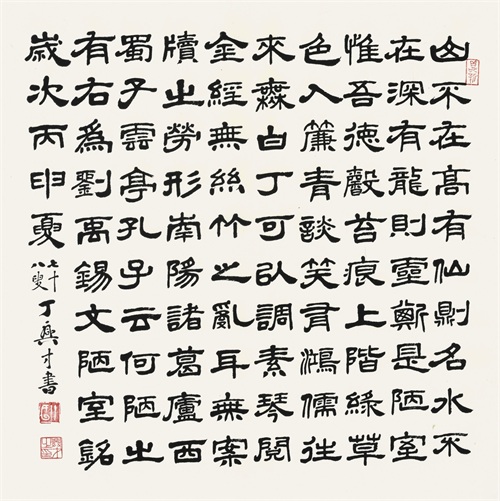 山不在高有仙則名水不
在深有龍則靈斯是陋室
惟吾徳馨苔痕上階綠草
色入簾青談笑有鴻儒往
來無白丁可以調素琴閱
金經無絲竹之亂耳無案
牘之勞形南陽諸葛廬西
蜀子雲亭孔子云何陋之
有右爲劉禹錫文陋室銘
歲次丙申夏七十八叟丁興才書